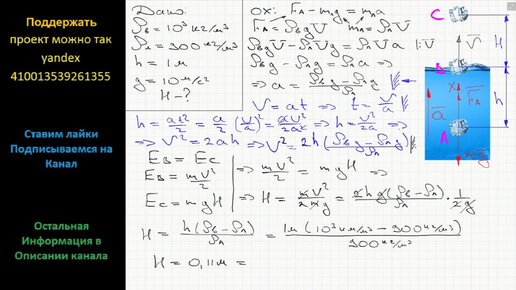 Поддержать
проект можно так
yandex
410013539261355
Ставим лайки
Подписываемся на
Канал
Остальная
Информация в
Описании канала
Дано:
ρв = 10³ кг/м³
ρл = 900 кг/м³
h = 1 м
g = 10 м/с²
H - ?
ох: FA - mлg = mлa
FA = ρвgV mл = ρлV
ρвgV - ρлVg = ρлVa | :V
ρвg - ρлg = ρлa ⇒
⇒ a = (ρвg - ρлg)/ρл
V = at ⇒ t = V/a
h = at²/2 = a/2 (V/a)² = aV²/2a² ⇒ h = V²/2a ⇒
⇒ V² = 2ah ⇒ V² = 2h (ρвg - ρлg)/ρл
EB = EC
EB = mV²/2
EC = mgH
⇒ mV²/2 = mgH ⇒
⇒ H = mV²/2mg = 2hg(ρв - ρл)/ρл · 1/2g
H = h(ρв - ρл)/ρл = 1м (10³ кг/м³ - 900 кг/м³)/900 кг/м³
H = 0,11 м =
C
H
V
B
x
h
a
FA
A
mлg